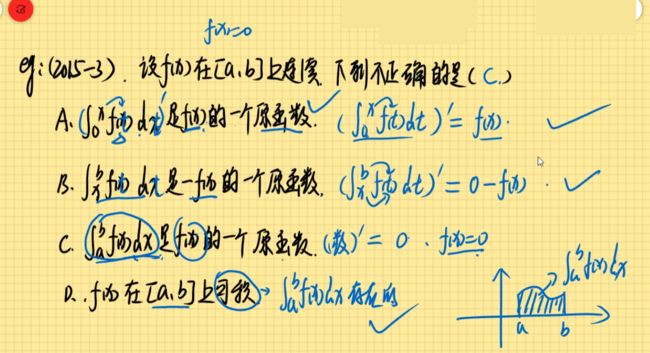 f(x)=0
eg:(2015-3). 设f(x)在[a,b]上连续,下列不正确的是(C.)
A.(∫₀ˣf(t)dt)'是f(x)的一个原函数. (∫ₐˣf(t)dt)'=f(x).
B.∫ₓᵇf(t)dt是-f(x)的一个原函数. (∫ₓᵇf(t)dt)'=0-f(x).
C.∫ₐᵇf(x)dx是f(x)的一个原函数.(数)'=0.f(x)=0
D.f(x)在[a,b]上可积→∫ₐᵇf(x)dx存在的
∫ₐᵇf(x)dx
a b